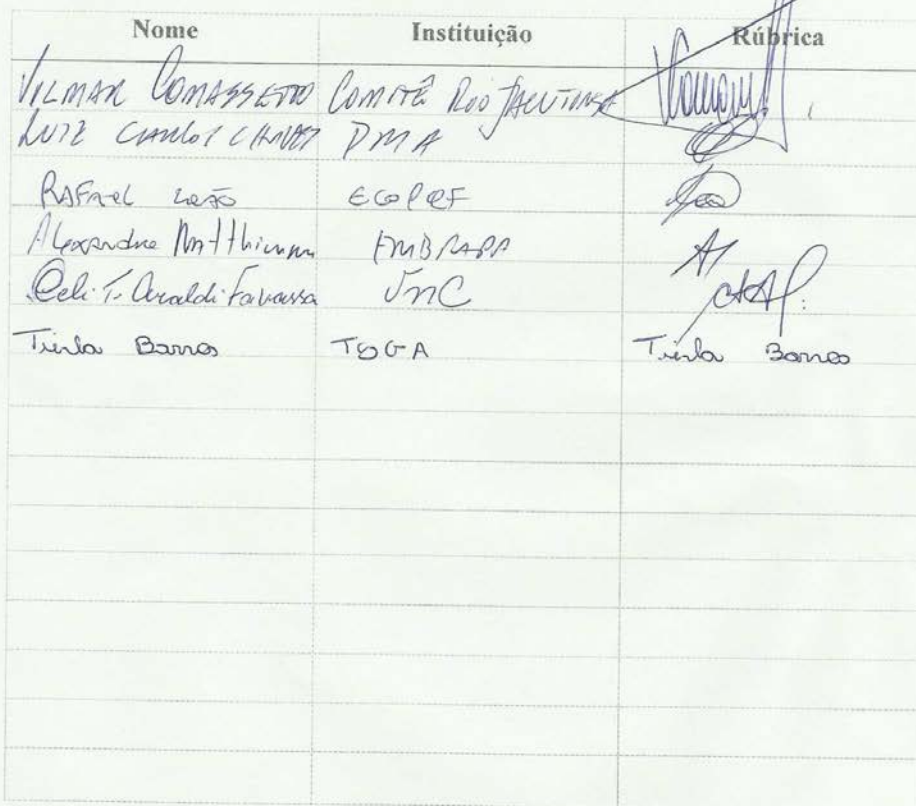 Nome Instituição Rúbrica
VILMAR COMASSETTO COMITÊ RIO JACUTINGA
LUIZ CARLOS CHAVES PMA
RAFAEL LEÃO ECOPEF
Alexandre Matthiensen EMBRAPA
Celi T. Araldi Favassa UnC
Tierla Barros TSGA Tierla Barros